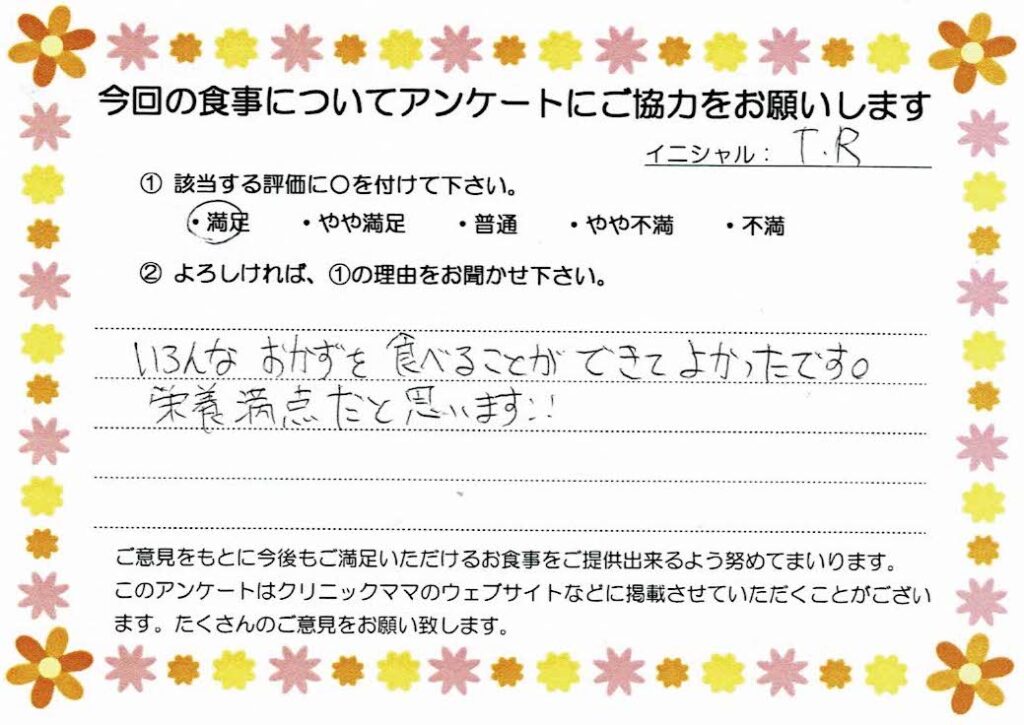 今回の食事についてアンケートにご協力をお願いします
イニシャル： T.R
① 該当する評価に〇を付けて下さい。
・満足 ・やや満足 ・普通 ・やや不満 ・不満
② よろしければ、①の理由をお聞かせ下さい。
いろんな おかずを 食べることが できて よかったです。
栄養満点だと思います!!
ご意見をもとに今後もご満足いただけるお食事をご提供出来るよう努めてまいります。
このアンケートはクリニックママのウェブサイトなどに掲載させていただくことがござい
ます。たくさんのご意見をお願い致します。